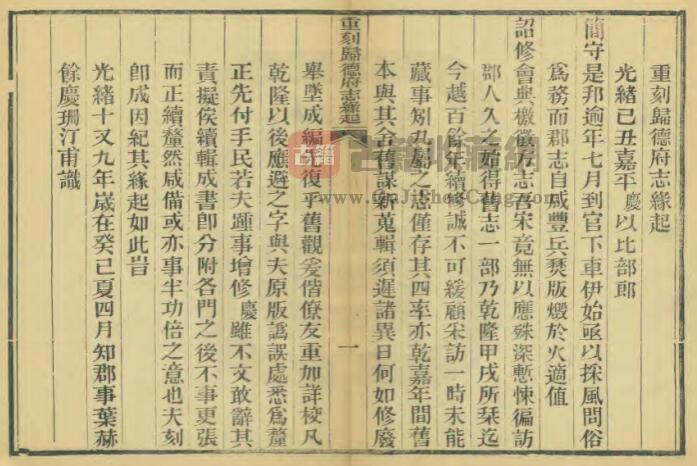 重刻歸德府志緣起
光緒己丑嘉平慶以比部郎
簡守是邦逾年七月到官下車伊始亟以採風問俗
爲務而郡志自咸豐兵燹版燬於火適值
詔修會典檄徵方志吾宋竟無以應殊深慙悚徧訪
郡人久之始得舊志一部乃乾隆甲戌所栞迄
今越百餘年續修誠不可緩顧宋訪一時未能
蕆事矧九屬之志僅存其四率亦乾嘉年間舊
本與其合舊謀新蒐輯須遲諸異日何如修廢
重刻歸德府志緣起
一
舉墜成編復乎舊觀爰偕僚友重加詳校凡
乾隆以後應避之字與夫原版譌誤處悉爲釐
正先付手民若夫踵事增修慶雖不文敢辭其
責擬俟續輯成書即分附各門之後不事更張
而正續釐然咸備或亦事半功倍之意也夫刻
即成因紀其緣起如此旹
光緒十又九年嵗在癸巳夏四月知郡事葉赫
餘慶珊汀甫識
古籍收藏網
www.GuJiShouCang.com